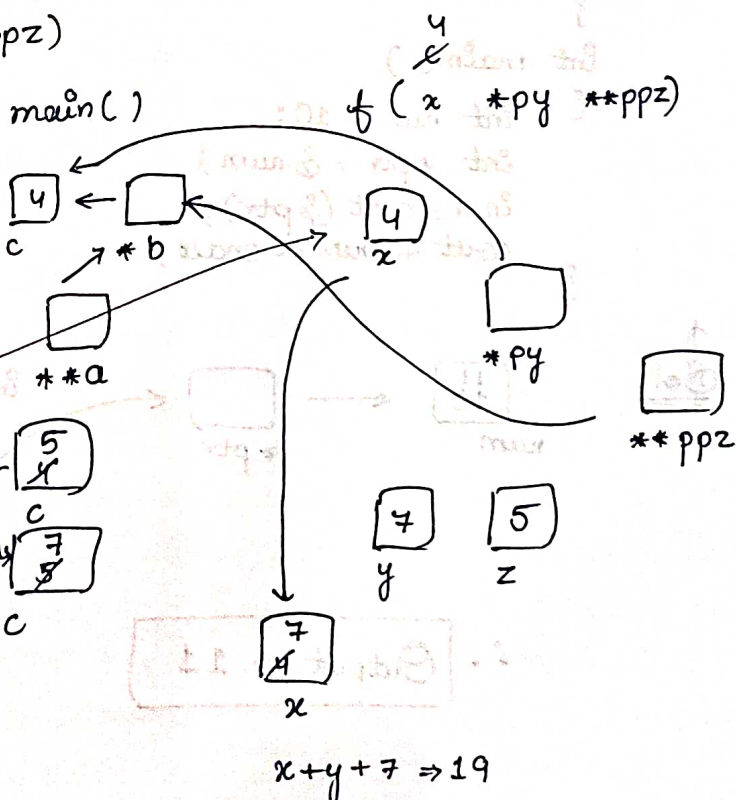 pz)
4
c
main( )
f ( x *py **ppz)
4
c
*b
4
x
**a
*py
**ppz
5
4
c
7
5
c
7
y
5
z
7
4
x
x+y+7 ⇒ 19